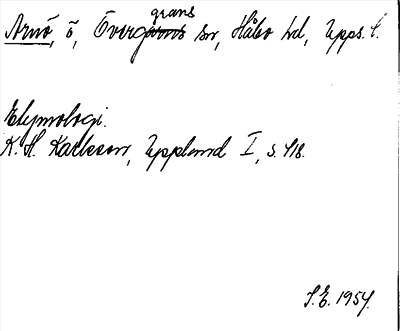 Arnö, ö, Övergrans sn, Håbo hd, Upps. l.
Etymologi.
K. H. Karlsson, Uppland I, s. 418.
S. E. 1954.